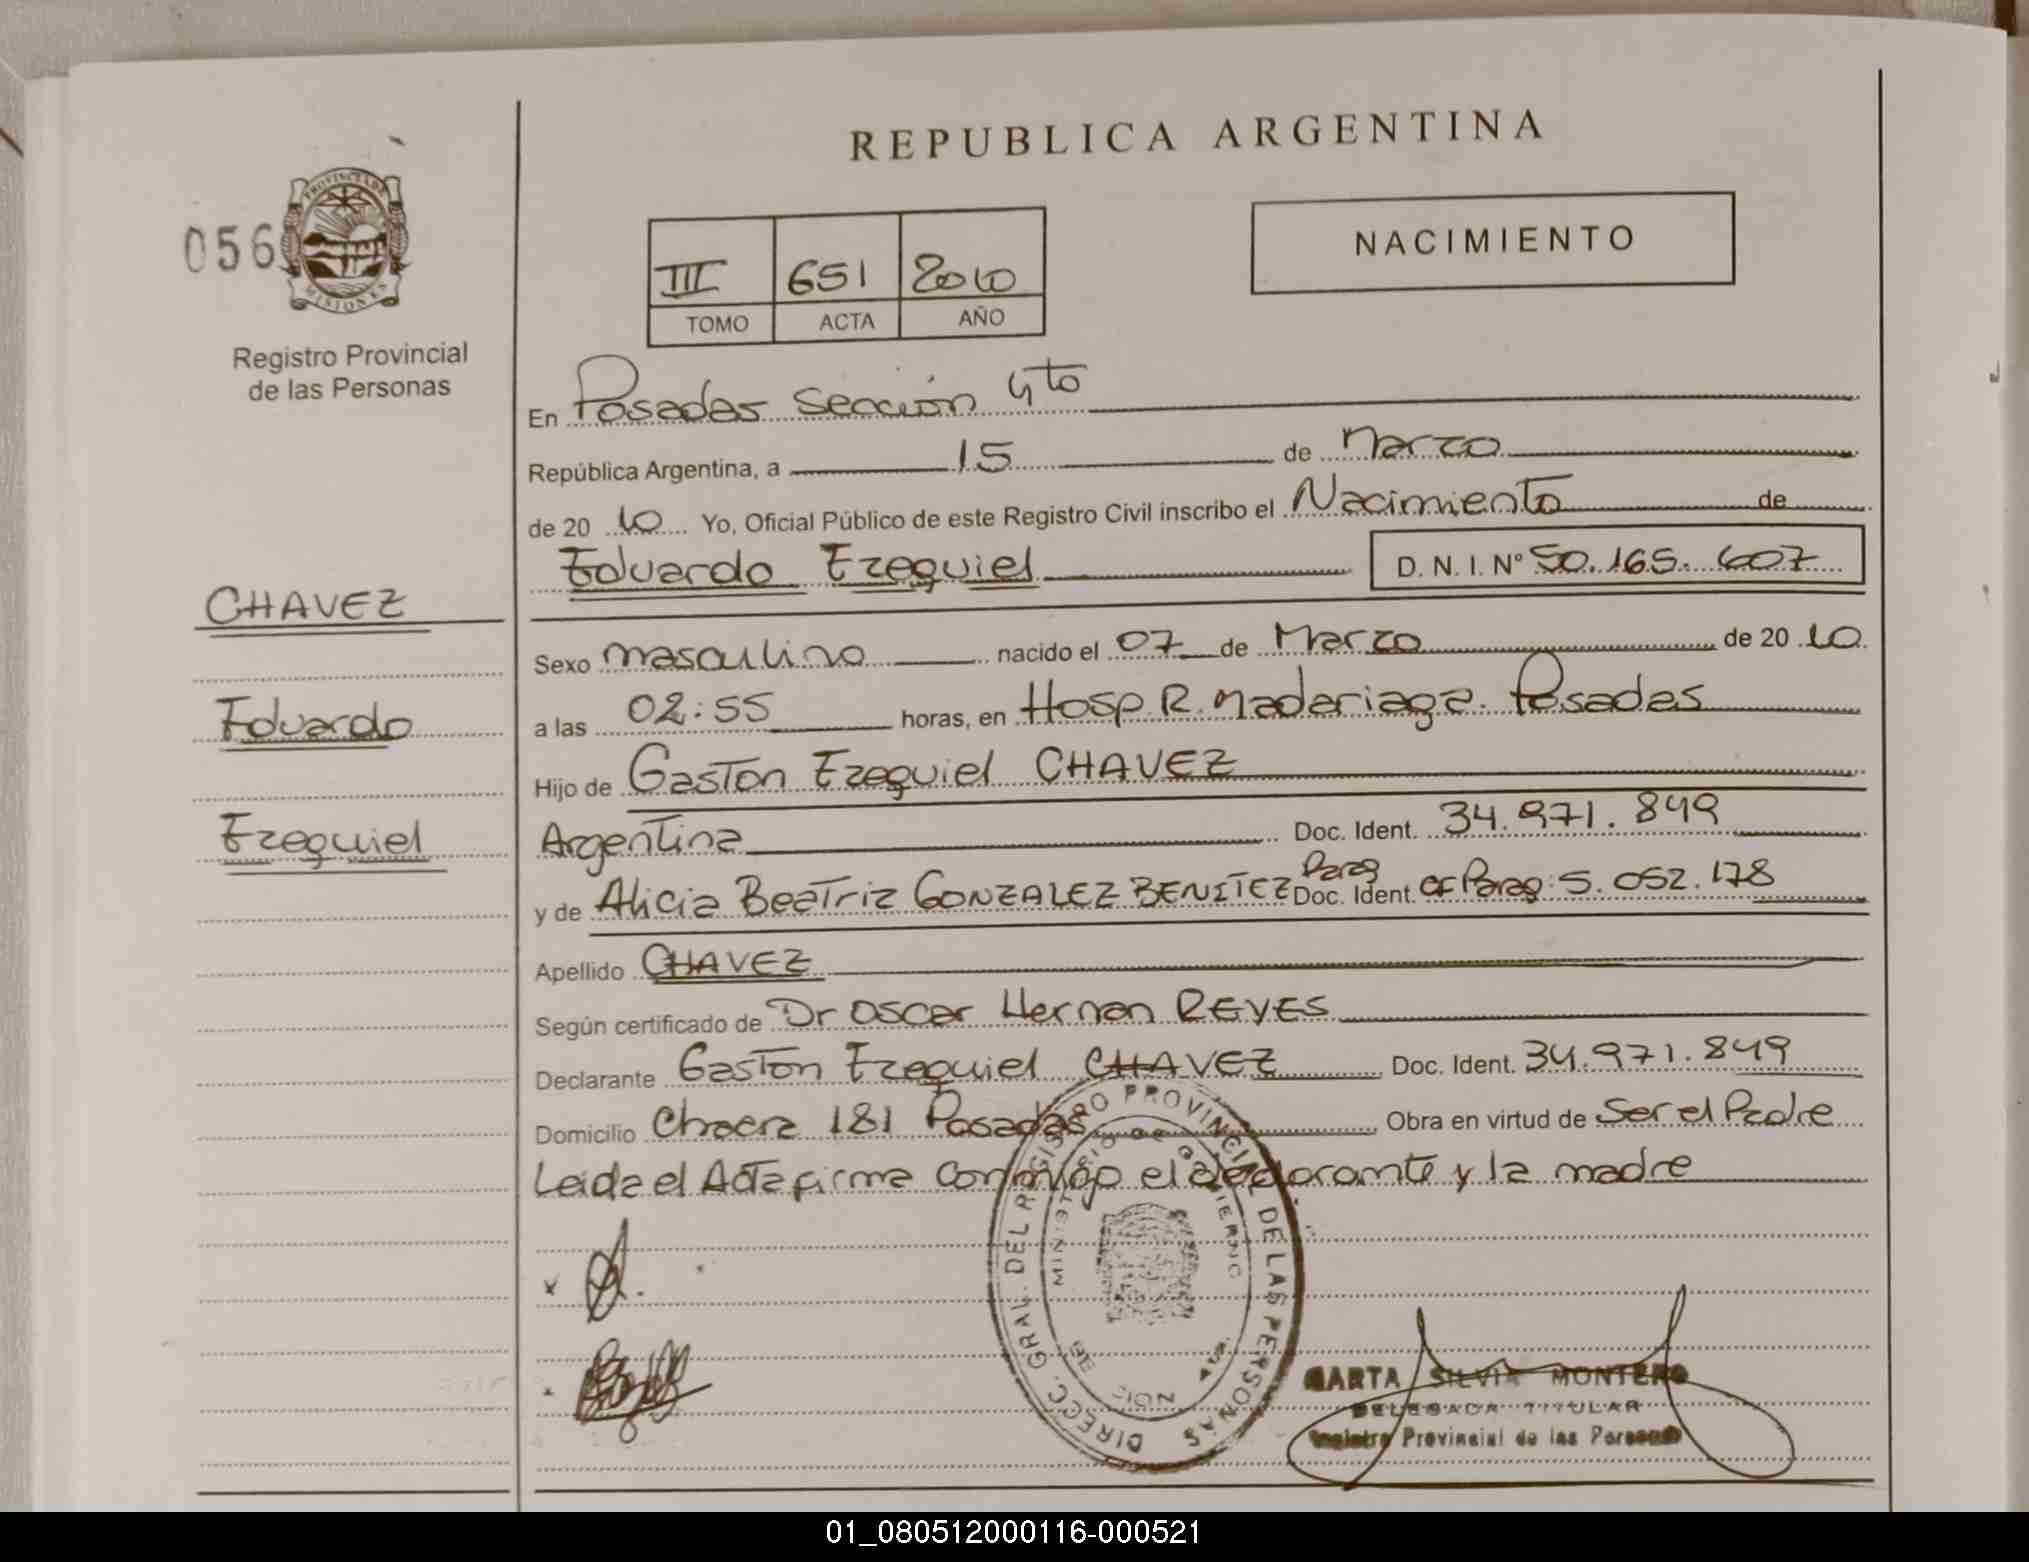 REPUBLICA ARGENTINA
056
PROVINCIA DE
MISIONES
Registro Provincial
de las Personas
III 651 2010
TOMO ACTA AÑO
NACIMIENTO
En Posadas Sección 4to
República Argentina, a 15 de Marzo
de 2010 Yo, Oficial Público de este Registro Civil inscribo el Nacimiento de
Eduardo Ezequiel D.N.I. Nº 50.165.607
CHAVEZ
Eduardo
Ezequiel
Sexo masculino nacido el 07 de Marzo de 2010
a las 02:55 horas, en Hosp. R. Madariaga. Posadas
Hijo de Gaston Ezequiel CHAVEZ
Argentina Doc. Ident. 34.971.849
Parag
y de Alicia Beatriz GONZALEZ BENITEZ Doc. Ident. CF Parag: 5.052.178
Apellido CHAVEZ
Según certificado de Dr Oscar Hernan REYES
Declarante Gaston Ezequiel CHAVEZ Doc. Ident. 34.971.849
Domicilio Chacra 181 Posadas Obra en virtud de Ser el Padre
Leida el Acta firma conmigo el declarante y la madre
DIRECC. GRAL. DEL REGISTRO PROVINCIAL DE LAS PERSONAS
MINISTERIO DE GOBIERNO
MARTA SILVIA MONTERO
DELEGADA TITULAR
Registro Provincial de las Personas
01_080512000116-000521